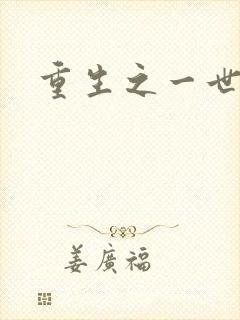 重生之一世
姜廣福